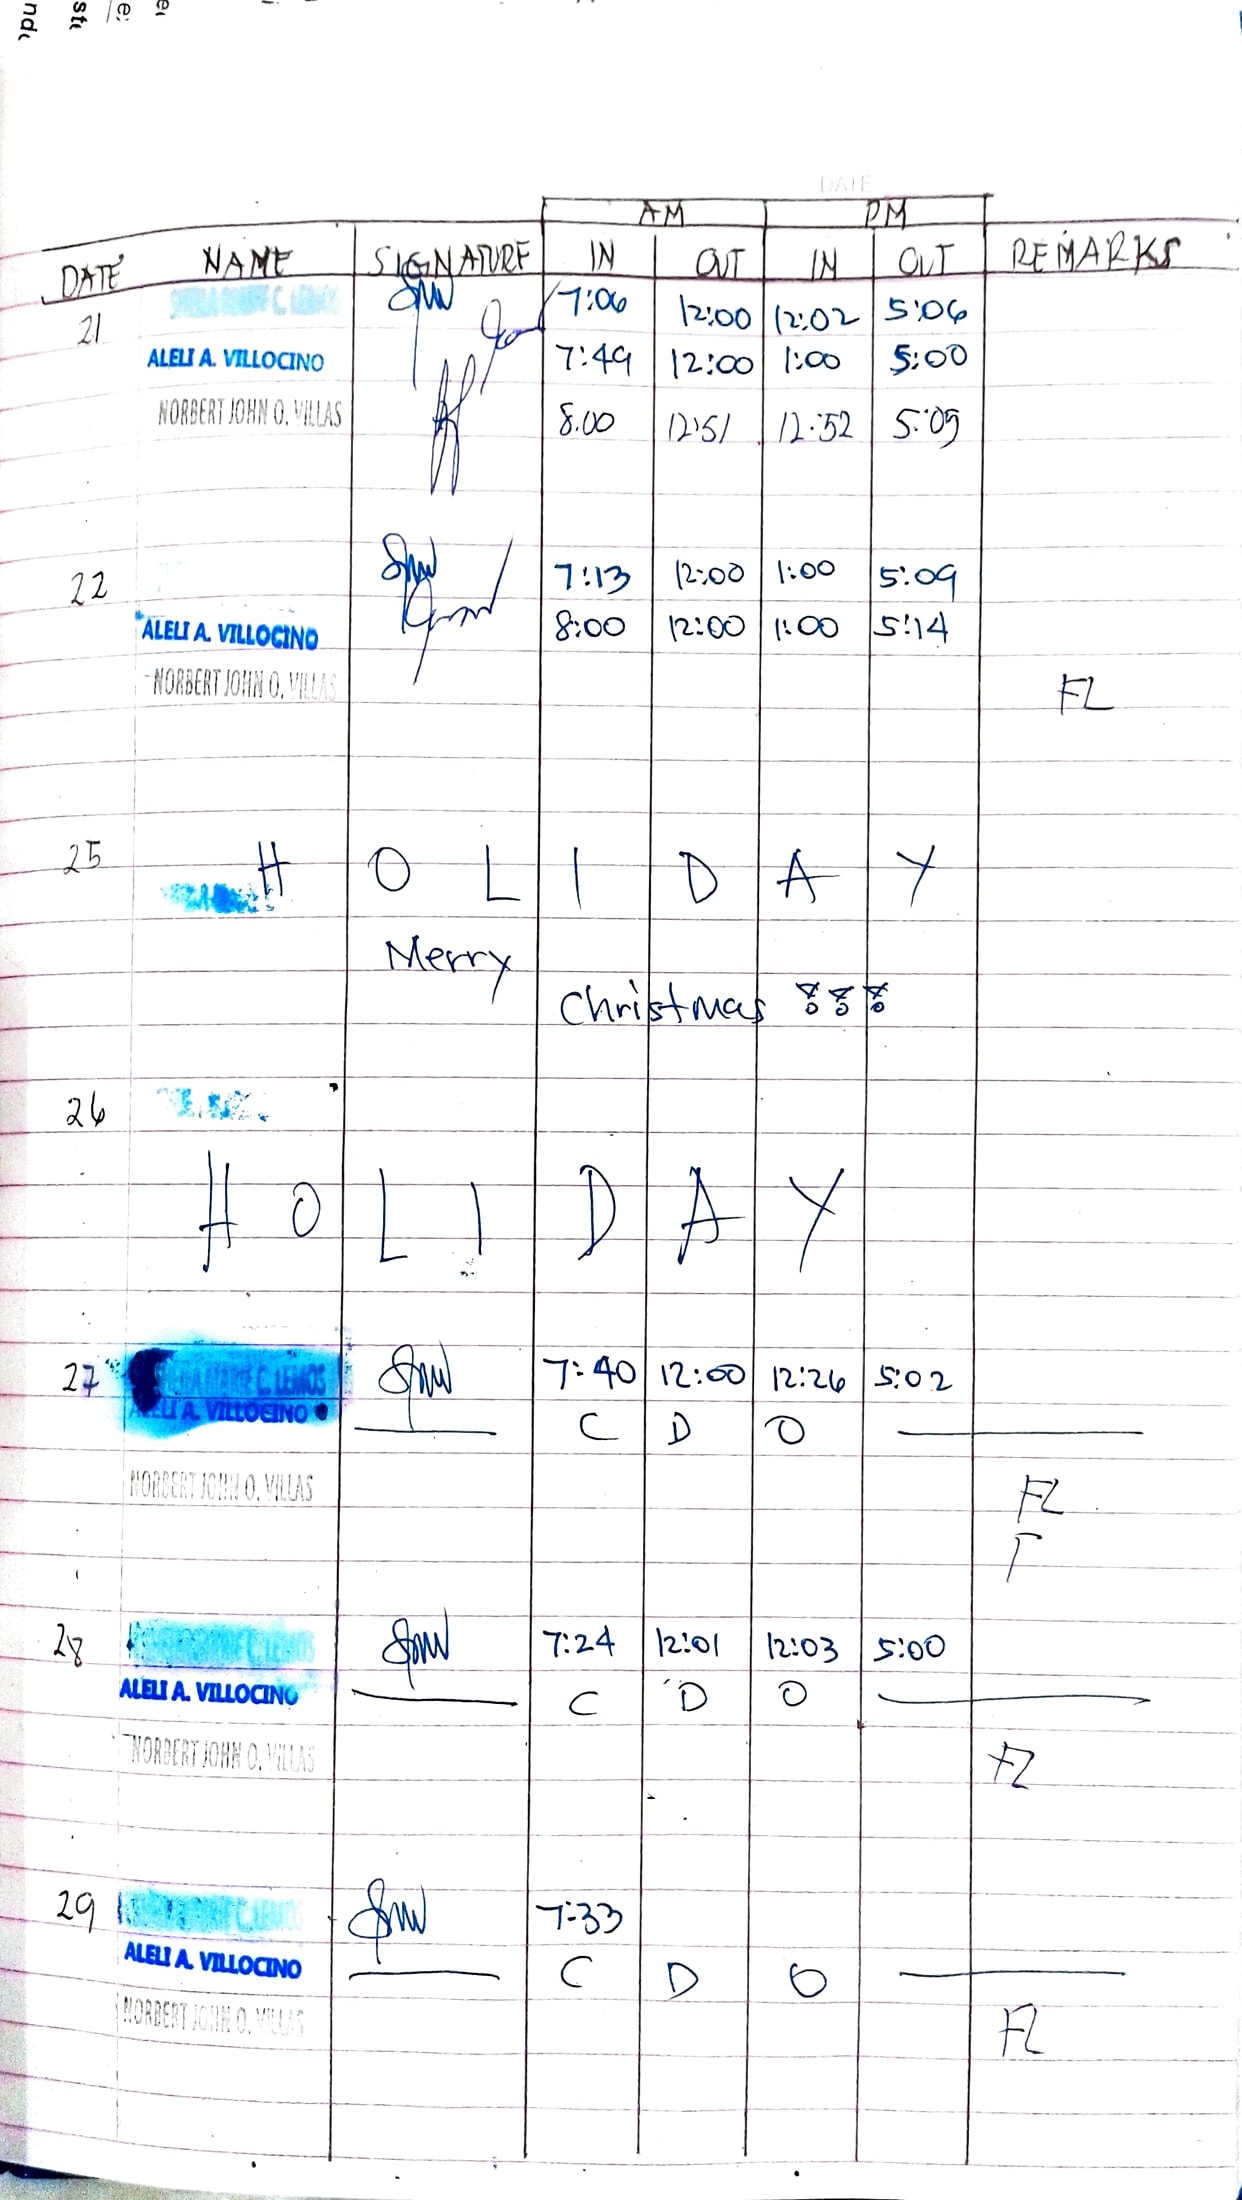 DATE
AM PM
DATE NAME SIGNATURE IN OUT IN OUT REMARKS
21 C. LEMOS 7:06 12:00 12:02 5:06
ALELI A. VILLOCINO 7:49 12:00 1:00 5:00
NORBERT JOHN O. VILLAS 8:00 12:51 12:52 5:09
22 7:13 12:00 1:00 5:09
ALELI A. VILLOCINO 8:00 12:00 1:00 5:14
NORBERT JOHN O. VILLAS FL
25 H O L I D A Y
Merry
Christmas !!!
26
H O L I D A Y
27 C. LEMOS 7:40 12:00 12:26 5:02
ALELI A. VILLOCINO C D O
NORBERT JOHN O. VILLAS FL
28 C. LEMOS 7:24 12:01 12:03 5:00
ALELI A. VILLOCINO C D O
NORBERT JOHN O. VILLAS FL
29 C. LEMOS 7:33
ALELI A. VILLOCINO C D O
NORBERT JOHN O. VILLAS FL